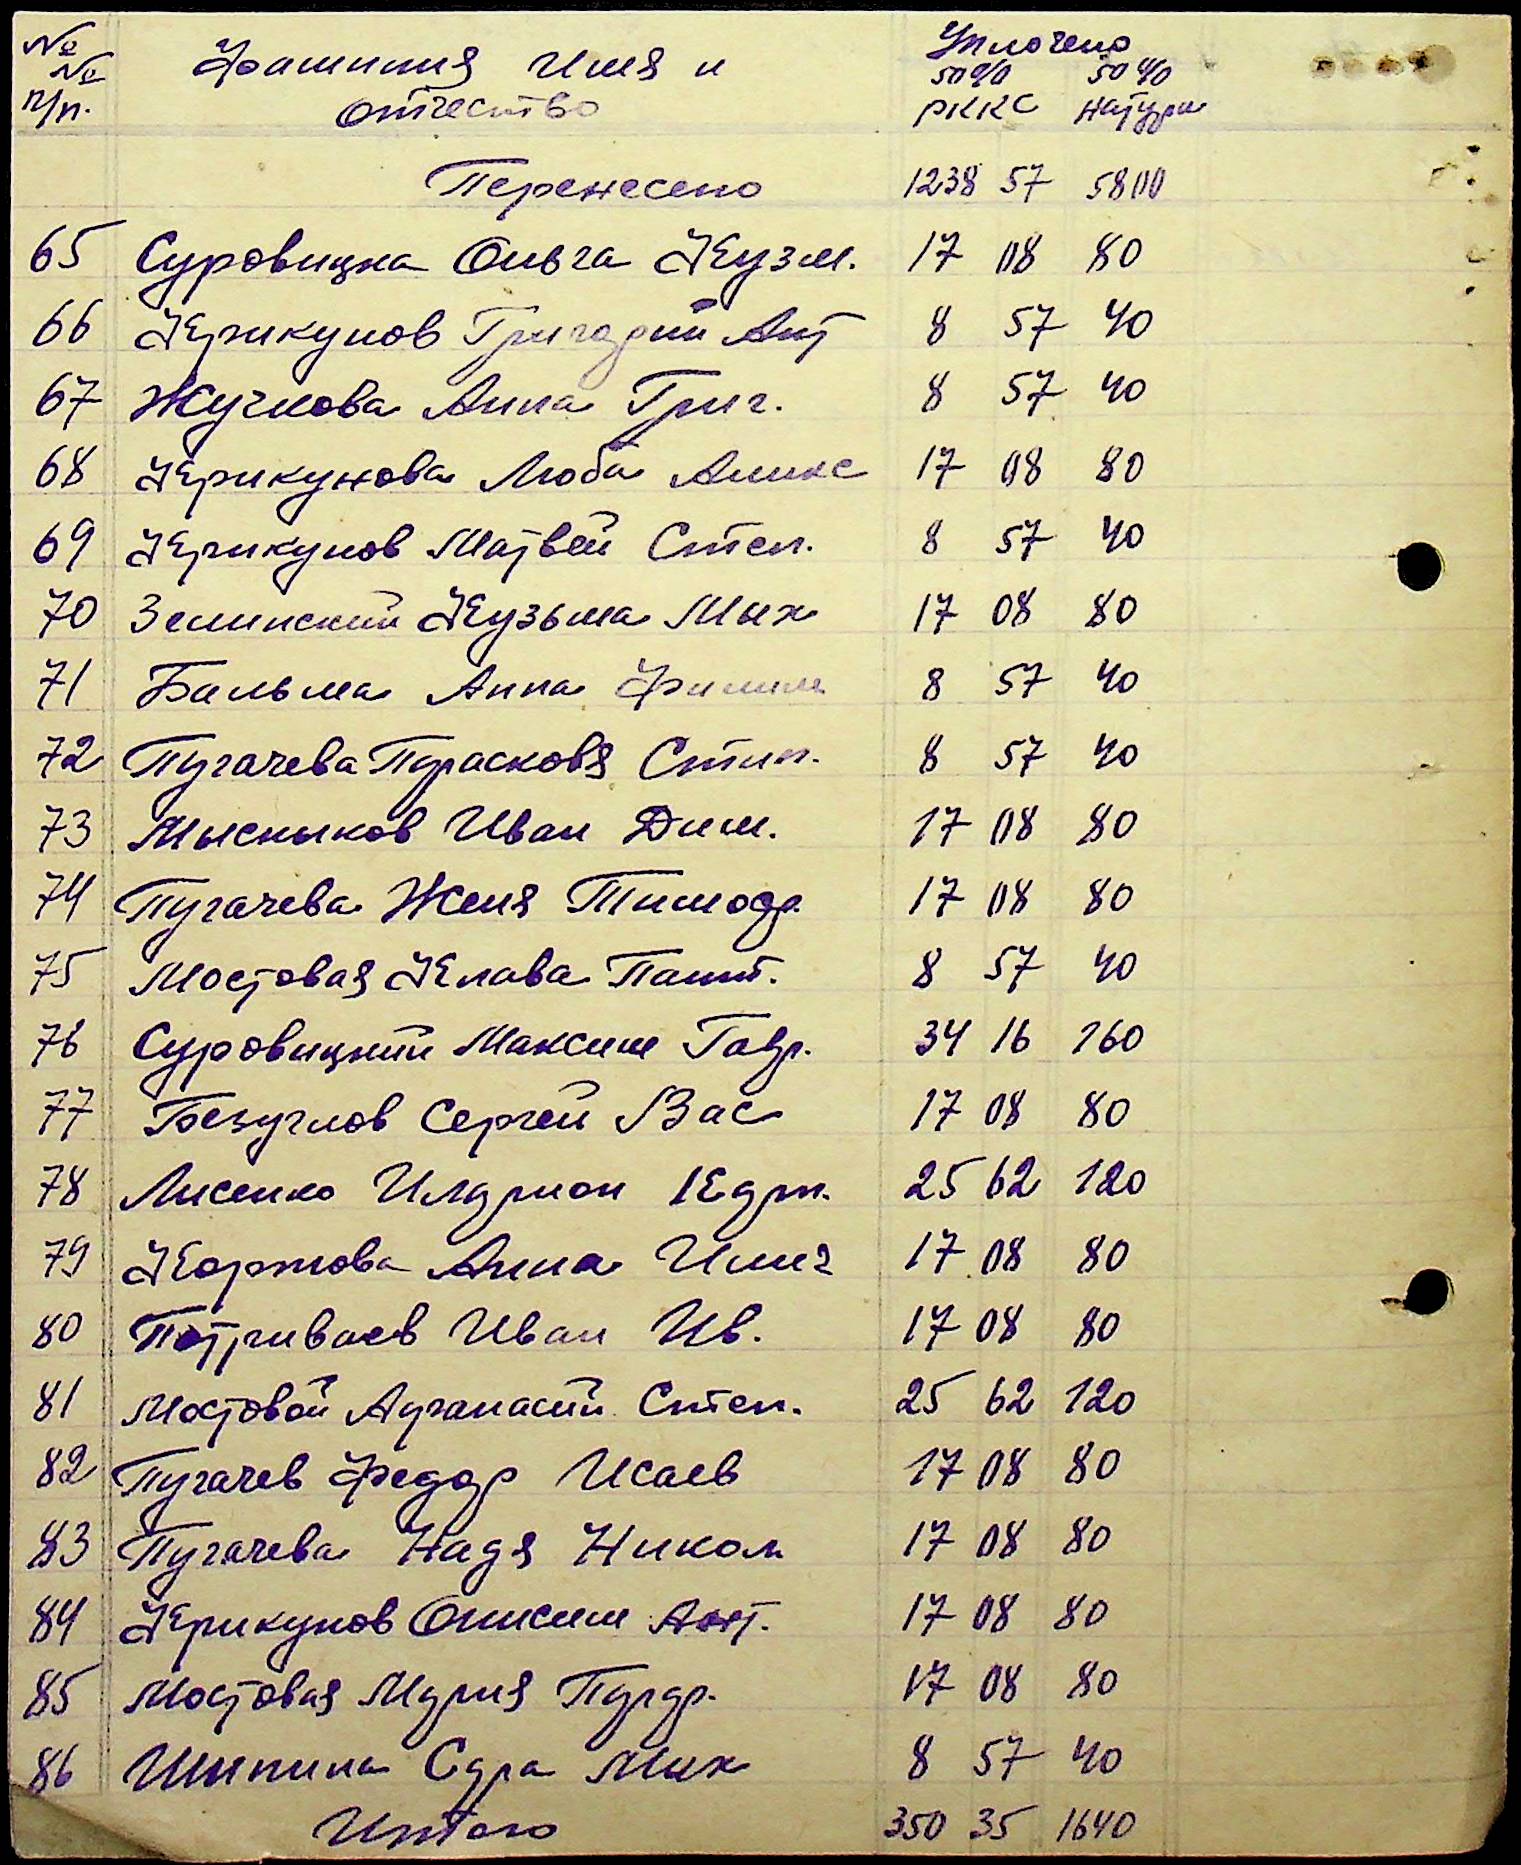 № № п/п. Фамилия Имя и отчество Уплочено
50% РККС 50% натури
Перенесено 1238 57 5800
65 Суровицка Ольга Кузм. 17 08 80
66 Крикунов Григорий Ант 8 57 40
67 Жучкова Анна Григ. 8 57 40
68 Крикунова Люба Аликс 17 08 80
69 Крикунов Матвей Степ. 8 57 40
70 Зелинский Кузьма Мих 17 08 80
71 Бальма Анна Филип 8 57 40
72 Пугачева Парасковя Стип. 8 57 40
73 Мысныков Иван Дим. 17 08 80
74 Пугачева Женя Тимоф. 17 08 80
75 Мостовая Клава Пант. 8 57 40
76 Суровицкий Максим Гавр. 34 16 160
77 Безуглов Сергей Вас 17 08 80
78 Лисенко Иларион 25 62 120
79 Анна 17 08 80
80 Потриваев Иван Ив. 17 08 80
81 Мостовой Афанасий Степ. 25 62 120
82 Пугачев Федор Исаев 17 08 80
83 Пугачева Надя Никол 17 08 80
84 Крикунов Онисим Ант. 17 08 80
85 Мостовая Мария 17 08 80
86 Шипила Сара Мих 8 57 40
Итого 350 35 1640